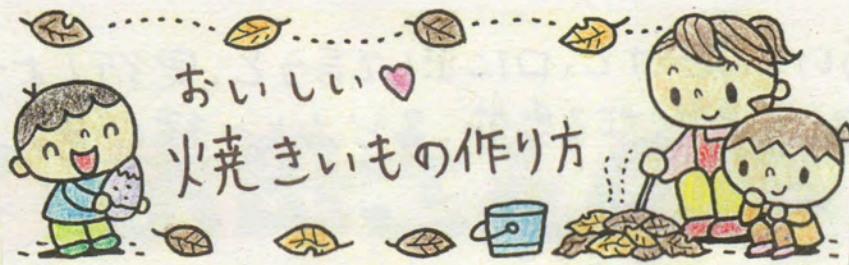 おいしい♥
焼きいもの作り方